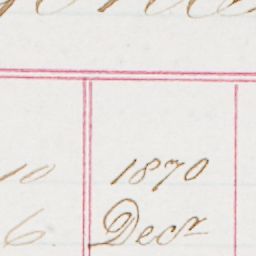 10 1870
6 Decr